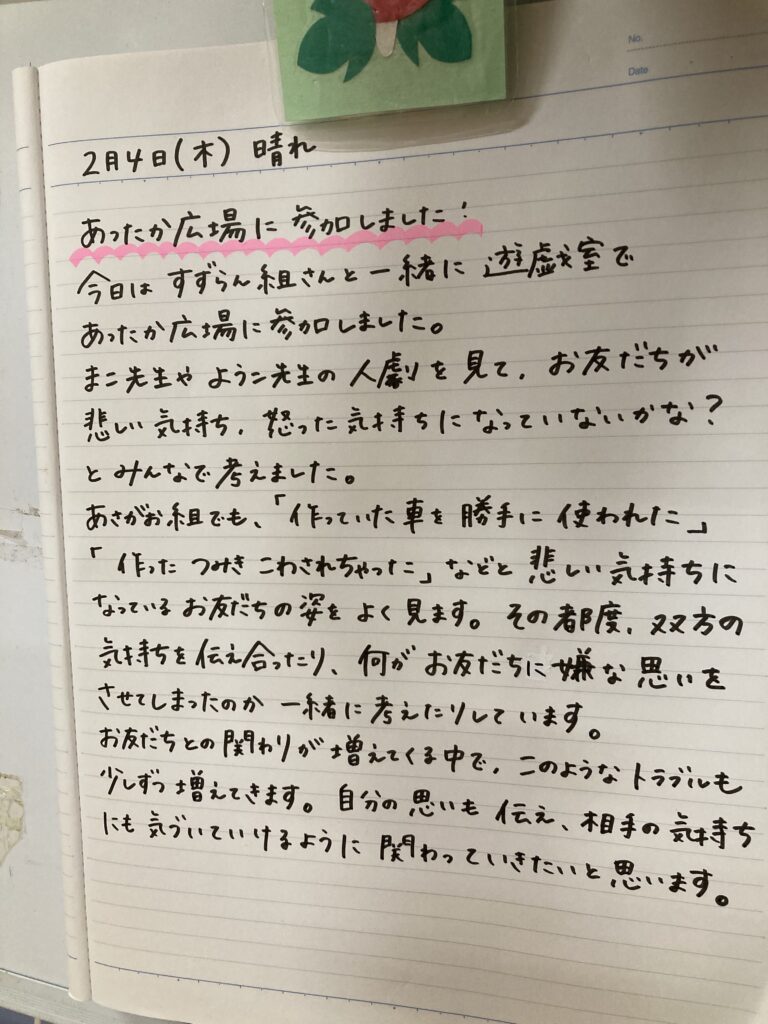 No.
Date
2月4日(木) 晴れ
あったか広場に参加しました!
今日は すずらん組さんと一緒に 遊戯室で
あったか広場に参加しました。
まこ先生や ようこ先生の 人劇を見て、お友だちが
悲しい気持ち、怒った気持ちになっていないかな?
とみんなで考えました。
あさがお組でも、「作っていた車を勝手に使われた」
「作った つみき こわされちゃった」などと悲しい気持ちに
なっているお友だちの姿をよく見ます。その都度、双方の
気持ちを伝え合ったり、何がお友だちに嫌な思いを
させてしまったのか 一緒に考えたりしています。
お友だちとの関わりが増えてくる中で、このようなトラブルも
少しずつ増えてきます。自分の思いも伝え、相手の気持ち
にも気づいていけるように関わっていきたいと思います。